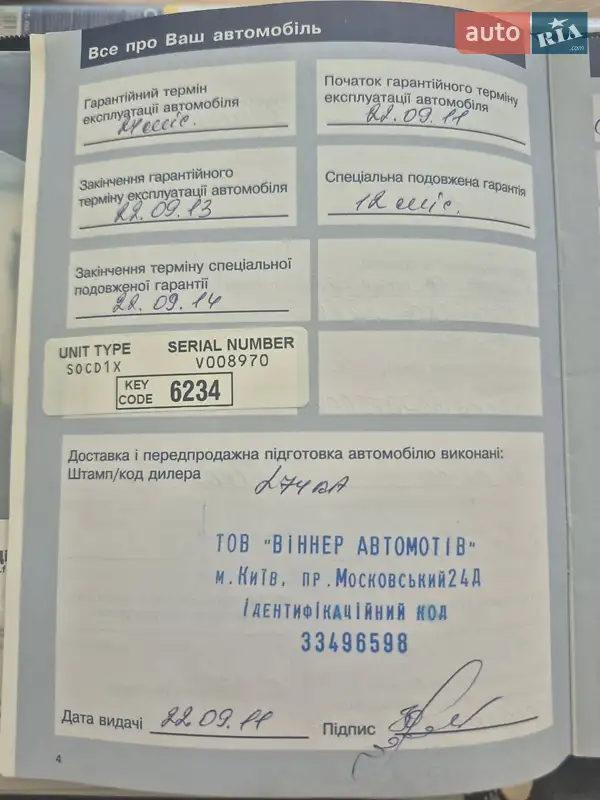 auto RIA .com
Все про Ваш автомобіль
Гарантійний термін
експлуатації автомобіля
24 міс.
Початок гарантійного терміну
експлуатації автомобіля
22.09.11
Закінчення гарантійного
терміну експлуатації автомобіля
22.09.13
Спеціальна подовжена гарантія
12 міс.
Закінчення терміну спеціальної
подовженої гарантії
22.09.14
UNIT TYPE SERIAL NUMBER
SOCD1X V008970
KEY
CODE 6234
Доставка і передпродажна підготовка автомобілю виконані:
Штамп/код дилера
ТОВ "ВІННЕР АВТОМОТІВ"
м.Київ, пр.Московський24Д
Ідентифікаційний код
33496598
Дата видачі 22.09.11 Підпис
4